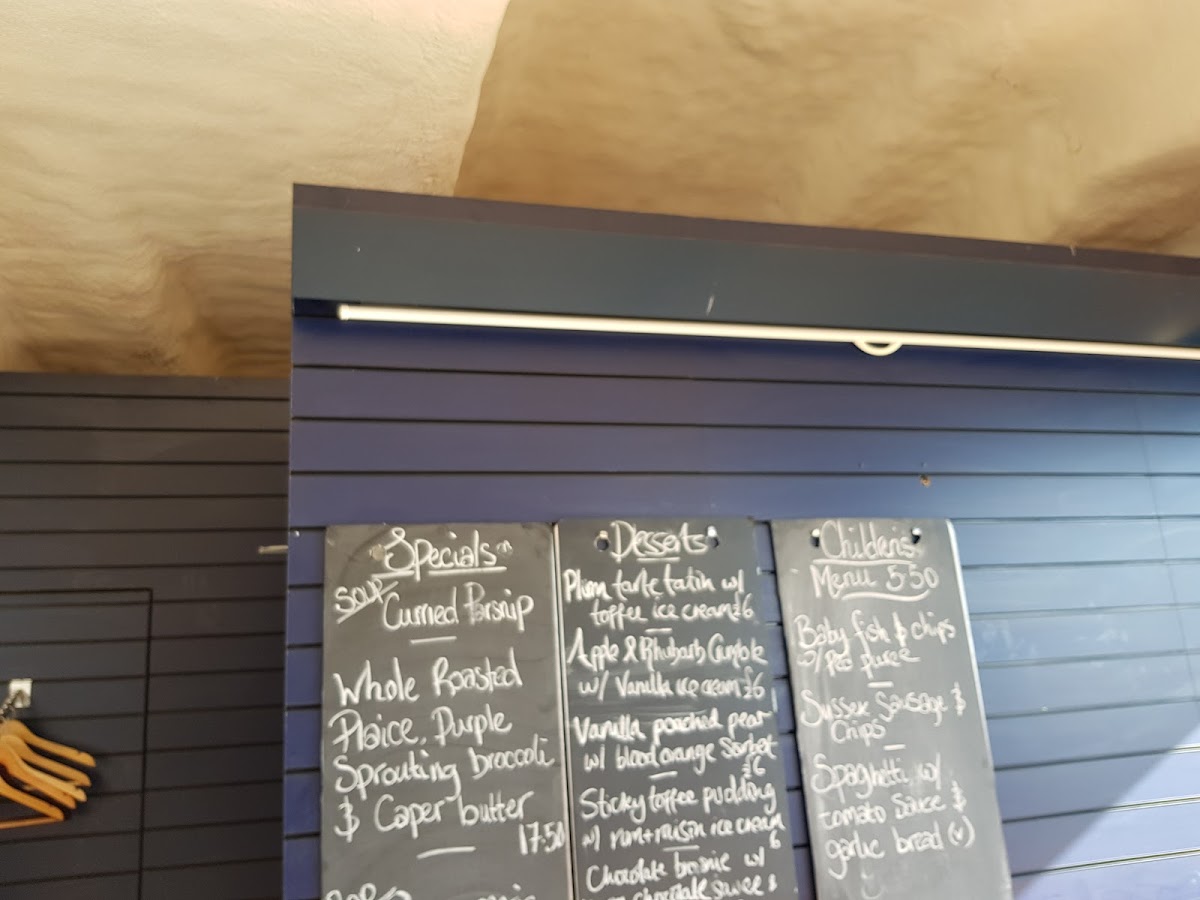 Specials
Soup
Curried Parsnip
Whole Roasted
Plaice, Purple
Sprouting broccoli
& Caper butter
17.50
Desserts
Plum tarte tatin w/
toffee ice cream £6
Apple & Rhubarb Crumble
w/ Vanilla ice cream £6
Vanilla poached pear
w/ blood orange Sorbet
£6
Sticky toffee pudding
w/ rum + raisin ice cream
6
Chocolate brownie w/
chocolate sauce &
Childrens
Menu 5.50
Baby fish & chips
Pea puree
Sussex Sausage &
Chips
Spaghetti w/
tomato sauce &
garlic bread (v)